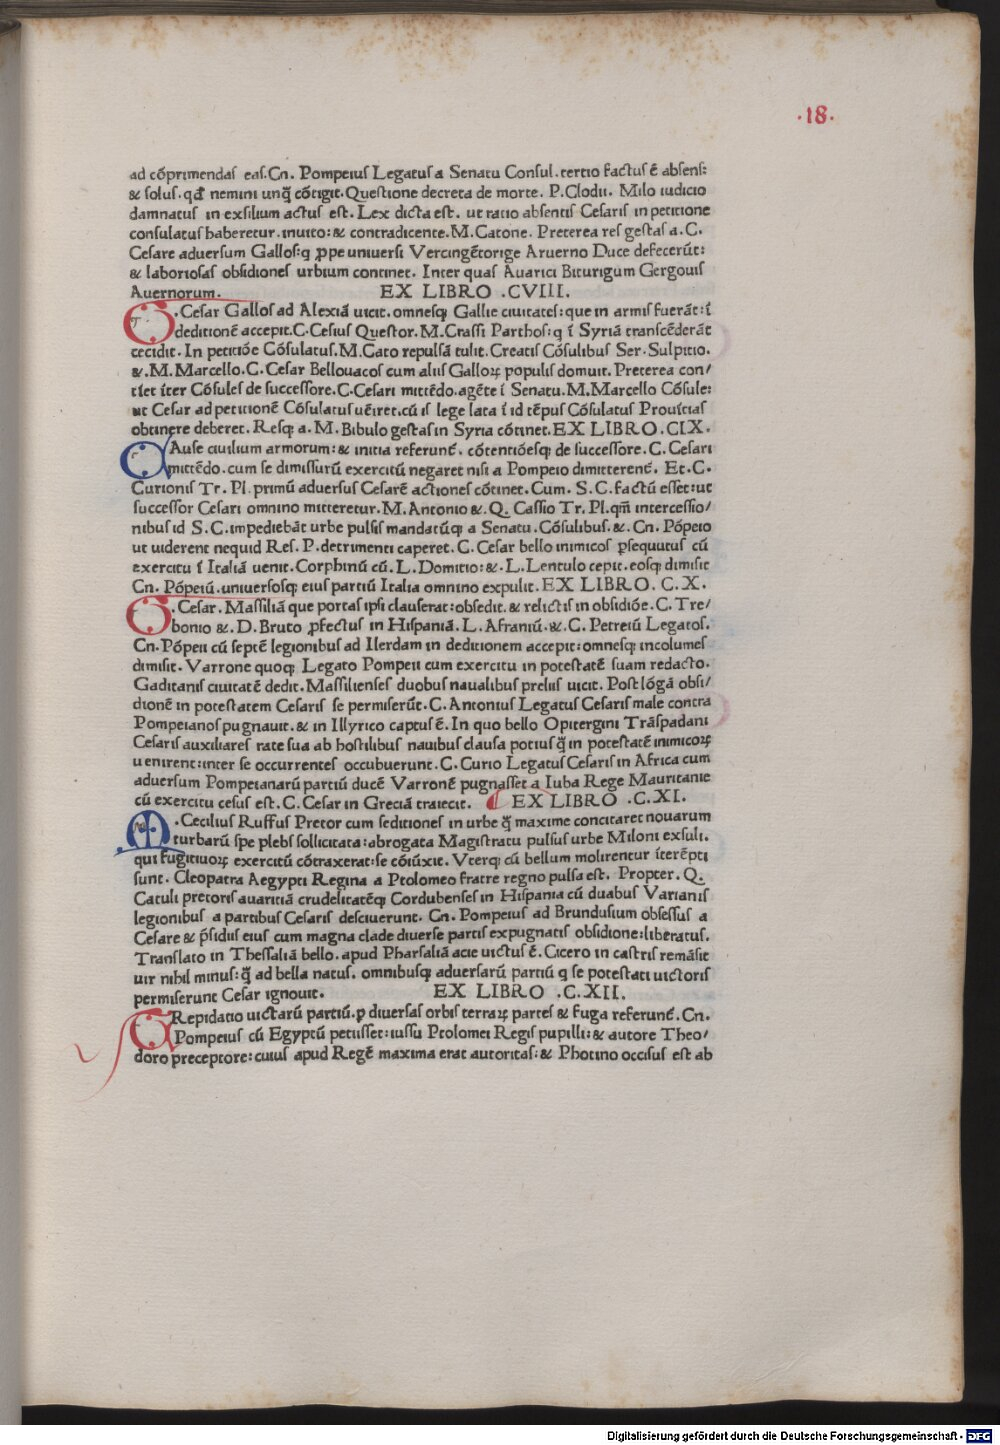 ·18·
ad cōprimendas eas. Cn. Pompeius Legatus a Senatu Consul. tertio factus ē absens:
& solus. qđ nemini unq̄ cōtigit. Questione decreta de morte. P. Clodii. Milo iudicio
damnatus in exsilium actus est. Lex dicta est. ut ratio absentis Cesaris in petitione
consulatus haberetur. inuito: & contradicente. M. Catone. Preterea res gestas a. C.
Cesare aduersum Gallos: q ꝓpe uniuersi Vercingētorige Aruerno Duce defecerūt:
& laboriosas obsidiones urbium continet. Inter quas Auarici Biturigum Gergouis
Auernorum. EX LIBRO .CVIII.
C. Cesar Gallos ad Alexiā uicit. omnesq; Gallie ciuitates: que in armis fuerāt: ī
deditionē accepit. C. Cesius Questor. M. Crassi Parthos: q ī Syriā transcēderāt
cecidit. In petitiōe Cōsulatus. M. Cato repulsā tulit. Creatis Cōsulibus Ser. Sulpitio.
&. M. Marcello. C. Cesar Bellouacos cum aliis Galloꝝ populis domuit. Preterea con/
tīet īter Cōsules de successore. C. Cesari mittēdo. agēte ī Senatu. M. Marcello Cōsule:
ut Cesar ad petitionē Cōsulatus uēiret. cū is lege lata ī id tēpus Cōsulatus Prouīcias
obtinere deberet. Resq; a. M. Bibulo gestas in Syria cōtinet. EX LIBRO. CIX.
CAuse ciuilium armorum: & initia referunt̄. cōtentiōesq; de successore. C. Cesari
mittēdo. cum se dimissurū exercitū negaret nisi a Pompeio dimitterent̄. Et. C.
Curionis Tr. Pl. primū aduersus Cesarē actiones cōtinet. Cum. S. C. factū esset: ut
successor Cesari omnino mitteretur. M. Antonio &. Q. Cassio Tr. Pl. qm̄ intercessio/
nibus id S. C. impediebāt urbe pulsis mandatūq; a Senatu. Cōsulibus. &. Cn. Pōpeio
ut uiderent nequid Res. P. detrimenti caperet. C. Cesar bello inimicos ꝑsequutus cū
exercitu ī Italiā uenit. Corphinū cū. L. Domitio: &. L. Lentulo cepit. eosq; dimisit
Cn. Pōpeiū. uniuersosq; eius partiū Italia omnino expulit. EX LIBRO. C. X.
C. Cesar. Massiliā que portas ipsi clauserat: obsedit. & relictis in obsidiōe. C. Tre/
bonio &. D. Bruto ꝓfectus in Hispaniā. L. Afraniū. &. C. Petreiū Legatos.
Cn. Pōpeii cū septē legionibus ad Ilerdam in deditionem accepit: omnesq; incolumes
dimisit. Varrone quoq; Legato Pompeii cum exercitu in potestatē suam redacto.
Gaditanis ciuitatē dedit. Massilienses duobus naualibus preliis uicit. Post lōgā obsi/
dionē in potestatem Cesaris se permiserūt. C. Antonius Legatus Cesaris male contra
Pompeianos pugnauit. & in Illyrico captus ē. In quo bello Opitergini Trāspadani
Cesaris auxiliares rate sua ab hostilibus nauibus clausa potius q̄ in potestatē inimicoꝝ
uenirent: inter se occurrentes occubuerunt. C. Curio Legatus Cesaris in Africa cum
aduersum Pompeianarū partiū ducē Varronē pugnasset a Iuba Rege Mauritanie
cū exercitu cesus est. C. Cesar in Greciā traiecit. EX LIBRO .C.XI.
M. Cecilius Ruffus Pretor cum seditiones in urbe q̄ maxime concitaret nouarum
turbarū spe plebs sollicitata: abrogata Magistratu pulsus urbe Miloni exsuli.
qui fugitiuoꝝ exercitū cōtraxerat: se cōiūxit. Vterq; cū bellum molirentur īterēpti
sunt. Cleopatra Aegypti Regina a Ptolomeo fratre regno pulsa est. Propter. Q.
Catuli pretoris auaritiā crudelitatēq; Cordubenses in Hispania cū duabus Varianis
legionibus a partibus Cesaris desciuerunt. Cn. Pompeius ad Brundusium obsessus a
Cesare & p̄sidiis eius cum magna clade diuerse partis expugnatis obsidione: liberatus.
Translato in Thessaliā bello. apud Pharsaliā acie uictus ē. Cicero in castris remāsit
uir nihil minus: q̄ ad bella natus. omnibusq; aduersarū partiū q se potestati uictoris
permiserunt Cesar ignouit. EX LIBRO .C.XII.
TRepidatio uictarū partiū. ꝑ diuersas orbis terraꝝ partes & fuga referunt̄. Cn.
Pompeius cū Egyptū petiisset: iussu Ptolomei Regis pupilli: & autore Theo/
doro preceptore: cuius apud Regē maxima erat autoritas: & Photino occisus est ab
Digitalisierung gefördert durch die Deutsche Forschungsgemeinschaft - DFG